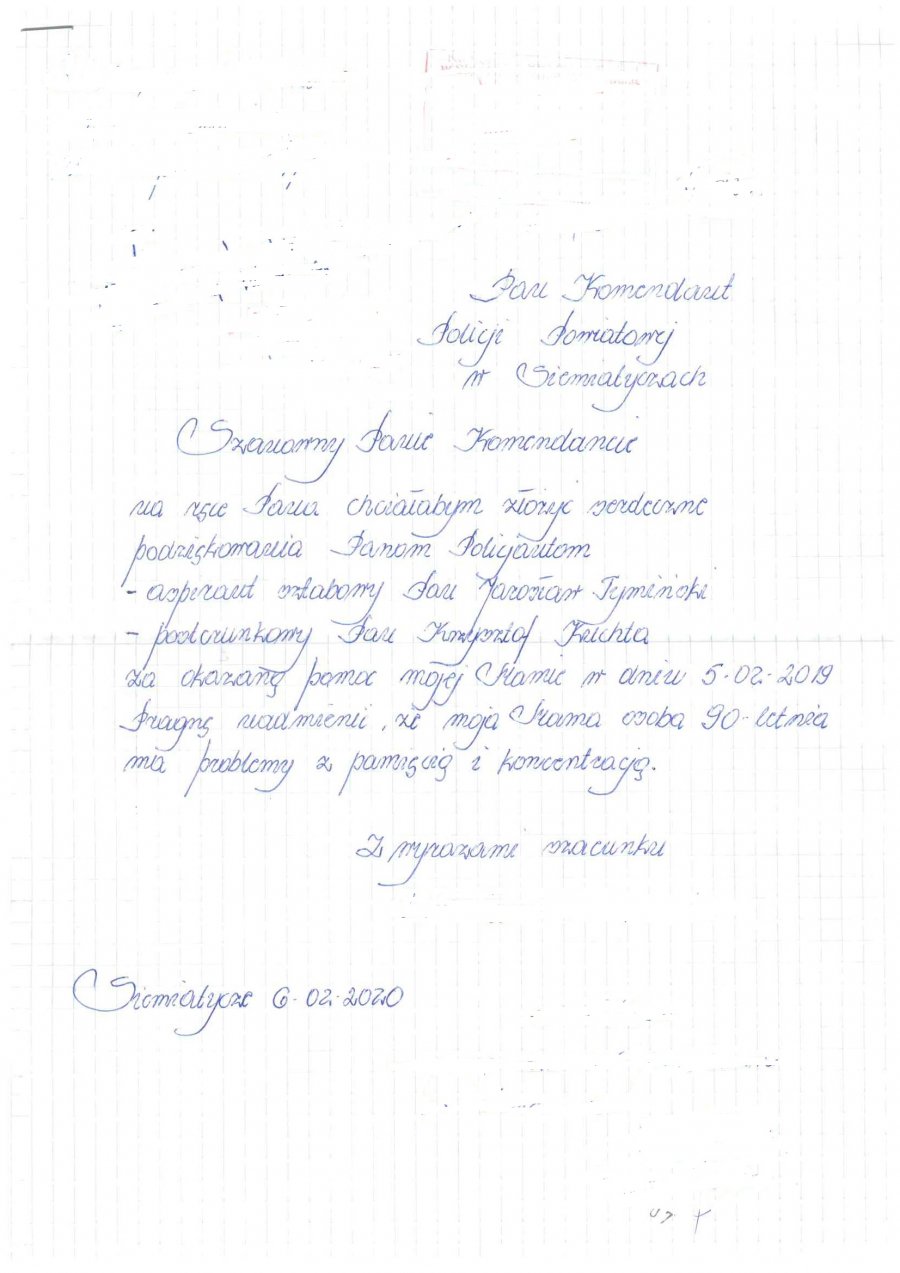 Pan Komendant
Policji Powiatowej
w Siemiatyczach
Szanowny Panie Komendancie
na ręce Pana chciałabym złożyć serdeczne
podziękowania Panom Policjantom
- aspirant sztabowy Pan Jarosław Tymiński
- posterunkowy Pan Krzysztof Krichta
za okazaną pomoc mojej Mamie w dniu 5.02.2019
Pragnę nadmienić, że moja Mama osoba 90-letnia
ma problemy z pamięcią i koncentracją.
Z wyrazami szacunku
Siemiatycze 6.02.2020